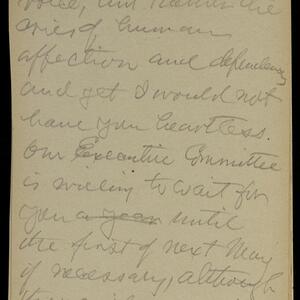 voice, and the
cries of human
affection and dependency
and yet I would not
have you heartless.
Our Executive Committee
is willing to wait for
you a year until
the first of next May
if necessary, although